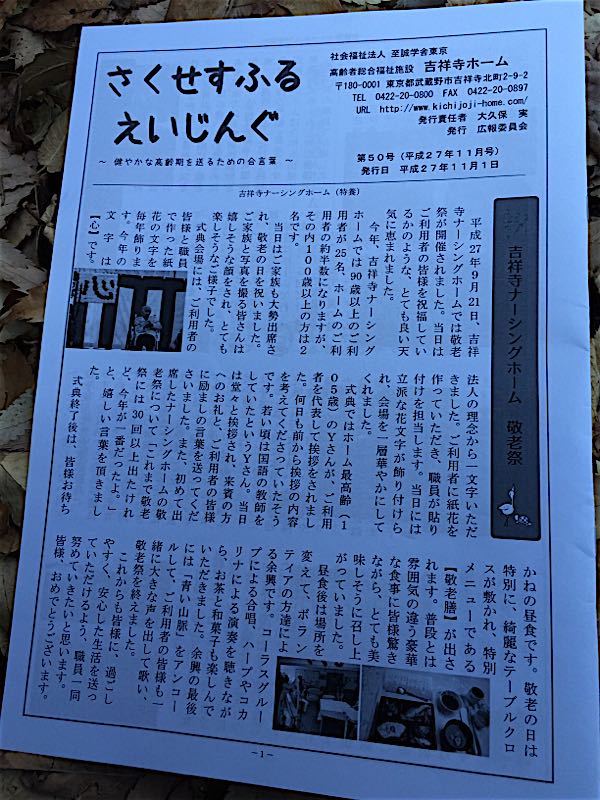 さくせすふる
えいじんぐ
～ 健やかな高齢期を送るための合言葉 ～
社会福祉法人 至誠学舎東京
高齢者総合福祉施設 吉祥寺ホーム
〒180-0001 東京都武蔵野市吉祥寺北町2-9-2
TEL 0422-20-0800 FAX 0422-20-0897
URL http://www.kichijoji-home.com/
発行責任者 大久保 実
発行 広報委員会
第50号（平成27年11月号）
発行日 平成27年11月1日
吉祥寺ナーシングホーム（特養）
吉祥寺ナーシングホーム 敬老祭
平成27年9月21日、吉祥
寺ナーシングホームでは敬老
祭が開催されました。当日は
ご利用者の皆様を祝福してい
るかのような、とても良い天
気に恵まれました。
今年、吉祥寺ナーシング
ホームでは90歳以上のご利
用者が25名、ホームのご利
用者の約半数になりますが、
その内100歳以上の方は2
名です。
当日はご家族も大勢出席さ
れ、敬老の日を祝いました。
ご家族と写真を撮る皆さんは
嬉しそうな顔をされ、とても
楽しそうなご様子でした。
式典会場には、ご利用者の
皆様と職員
で作った紙
花の文字を
毎年飾りま
す。今年の
文字は
【心】です。
心
法人の理念から一文字いただ
きました。ご利用者に紙花を
作っていただき、職員が貼り
付けを担当します。当日には
立派な花文字が飾り付けら
れ、会場を一層華やかにして
くれました。
式典ではホーム最高齢（1
05歳）のYさんが、ご利用
者を代表して挨拶をされまし
た。何日も前から挨拶の内容
を考えてくださっていたそう
です。若い頃は国語の教師を
していたというYさん。当日
は堂々と挨拶され、来賓の方
へのお礼と、ご利用者の皆様
に励ましの言葉を送ってくだ
さいました。また、初めて出
席したナーシングホームの敬
老祭について「これまで敬老
祭には30回以上出たけれ
ど、今年が一番だったよ。」
と、嬉しい言葉を頂きまし
た。
式典終了後は、皆様お待ち
かねの昼食です。敬老の日は
特別に、綺麗なテーブルクロ
スが敷かれ、特別
メニューである
【敬老膳】が出さ
れます。普段とは
雰囲気の違う豪華
な食事に皆様驚き
ながら、とても美
味しそうに召し上
がっていました。
昼食後は場所を
変えて、ボラン
ティアの方達によ
る余興です。コーラスグルー
プによる合唱、ハープやコカ
リナによる演奏を聴きなが
ら、お茶と和菓子も楽しんで
いただきました。余興の最後
には「青い山脈」をアンコー
ルして、ご利用者の皆様も一
緒に大きな声を出して歌い、
敬老祭を終えました。
これからも皆様に、過ごし
やすく、安心した生活を送っ
ていただけるよう、職員一同
努めていきたいと思います。
皆様、おめでとうございます。
-1-